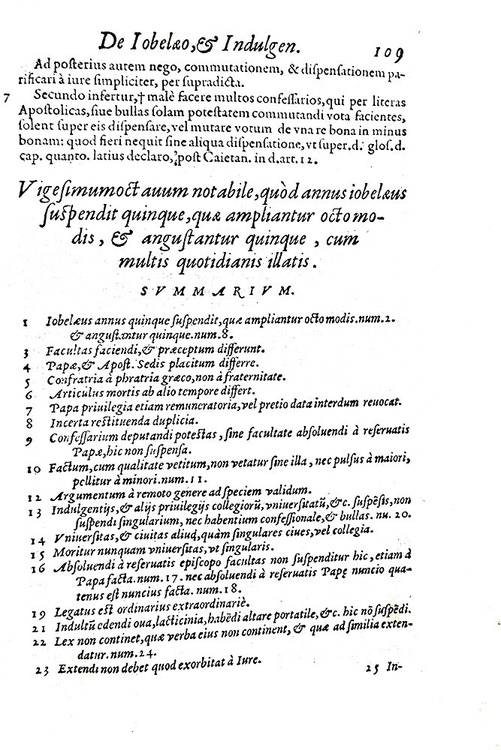 De Iobelæo, & Indulgen. 109
Ad posterius autem nego, commutationem, & dispensationem pa-
rificari à iure simpliciter, per supradicta.
7 Secundo infertur, † malè facere multos confessarios, qui per literas
Apostolicas, siue bullas solam potestatem commutandi vota facientes,
solent super eis dispensare, vel mutare votum de vna re bona in minus
bonam: quod fieri nequit sine aliqua dispensatione, vt super. d. glos. d.
cap. quanto. latius declaro, post Caietan. in d. art. 12.
Vigesimumoctauum notabile, quòd annus iobelæus
suspendit quinque, quæ ampliantur octo mo-
dis, & angustantur quinque, cum
multis quotidianis illatis.
SVMMARIVM.
1 Iobelæus annus quinque suspendit, quæ ampliantur octo modis. num. 2.
& angustantur quinque. num. 8.
3 Facultas faciendi, & præceptum differunt.
4 Papæ, & Apost. Sedis placitum differre.
5 Confratria à phratria græco, non à fraternitate.
6 Articulus mortis ab alio tempore differt.
7 Papa priuilegia etiam remuneratoria, vel pretio data interdum reuocat.
8 Incerta restituenda duplicia.
9 Confessarium deputandi potestas, sine facultate absoluendi à reseruatis
Papæ, hic non suspensa.
10 Factum, cum qualitate vetitum, non vetatur sine illa, nec pulsus à maiori,
pellitur à minori. num. 11.
12 Argumentum à remoto genere ad speciem validum.
13 Indulgentijs, & alijs priuilegijs collegiorũ, vniuersitatũ, &c. suspẽsis, non
suspendi singularium, nec habentium confessionale, & bullas. nu. 20.
14 Vniuersitas, & ciuitas aliud, quàm singulares ciues, vel collegia.
15 Moritur nunquam vniuersitas, vt singularis.
16 Absoluendi à reseruatis episcopo facultas non suspenditur hic, etiam à
Papa facta. num. 17. nec absoluendi à reseruatis Papæ nuncio qua-
tenus est nuncius facta. num. 18.
19 Legatus est ordinarius extraordinariè.
21 Indultũ edendi oua, lacticinia, habẽdi altare portatile, &c. hic nõ suspẽdi.
22 Lex non continet, quæ verba eius non continent, & quæ ad similia exten-
datur. num. 24.
23 Extendi non debet quod exorbitat à Iure.
25 In-